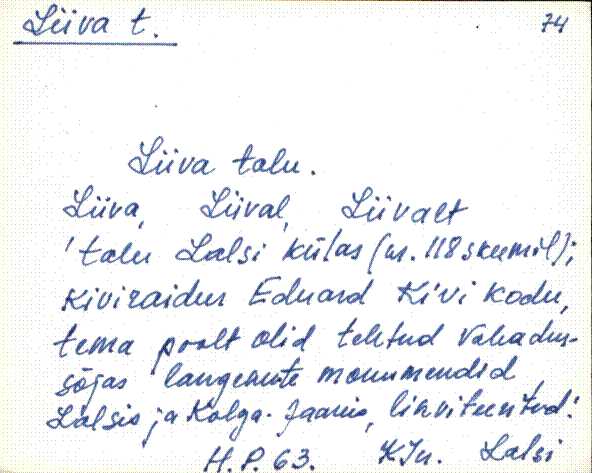 Liiva t. 74
Liiva talu.
Liiva, Liival, Liivalt
'talu Lalsi külas (nr. 118 skeemil);
Kiviraidur Eduard Kivi kodu,
tema poolt olid tehtud Vabadus-
sõjas langenute monumendid
Lalsis ja Kolga-Jaanis, likviteeritud.'
H.P. 63. KJn. Lalsi